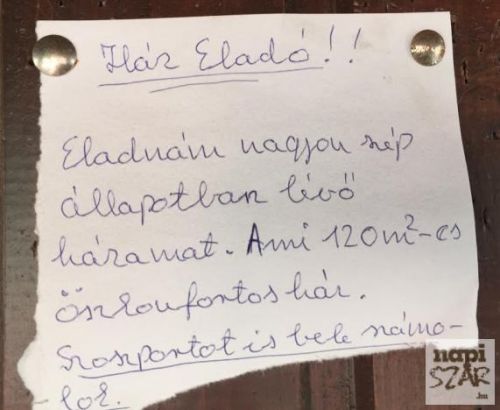 Ház Eladó!!
Eladnám nagyon szép
állapotban lévő
házamat. Ami 120m²-es
öszkonfontos ház.
Szoszportot is bele számo-
-lok.
napi
SZAR
.hu